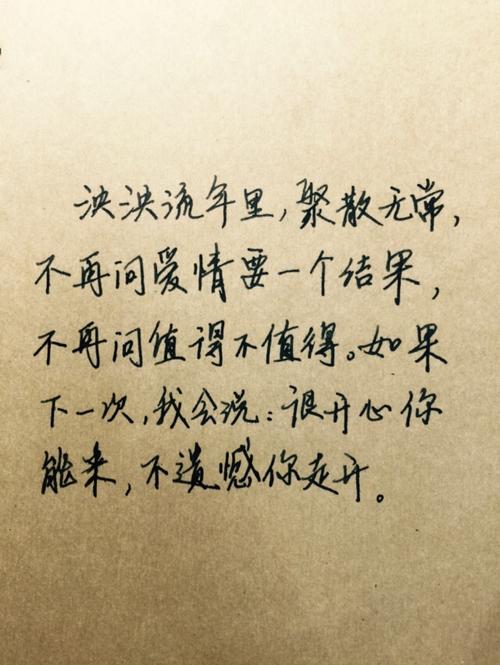 泱泱流年里，聚散无常，
不再问爱情要一个结果，
不再问值得不值得。如果
下一次，我会说：很开心你
能来，不遗憾你走开。